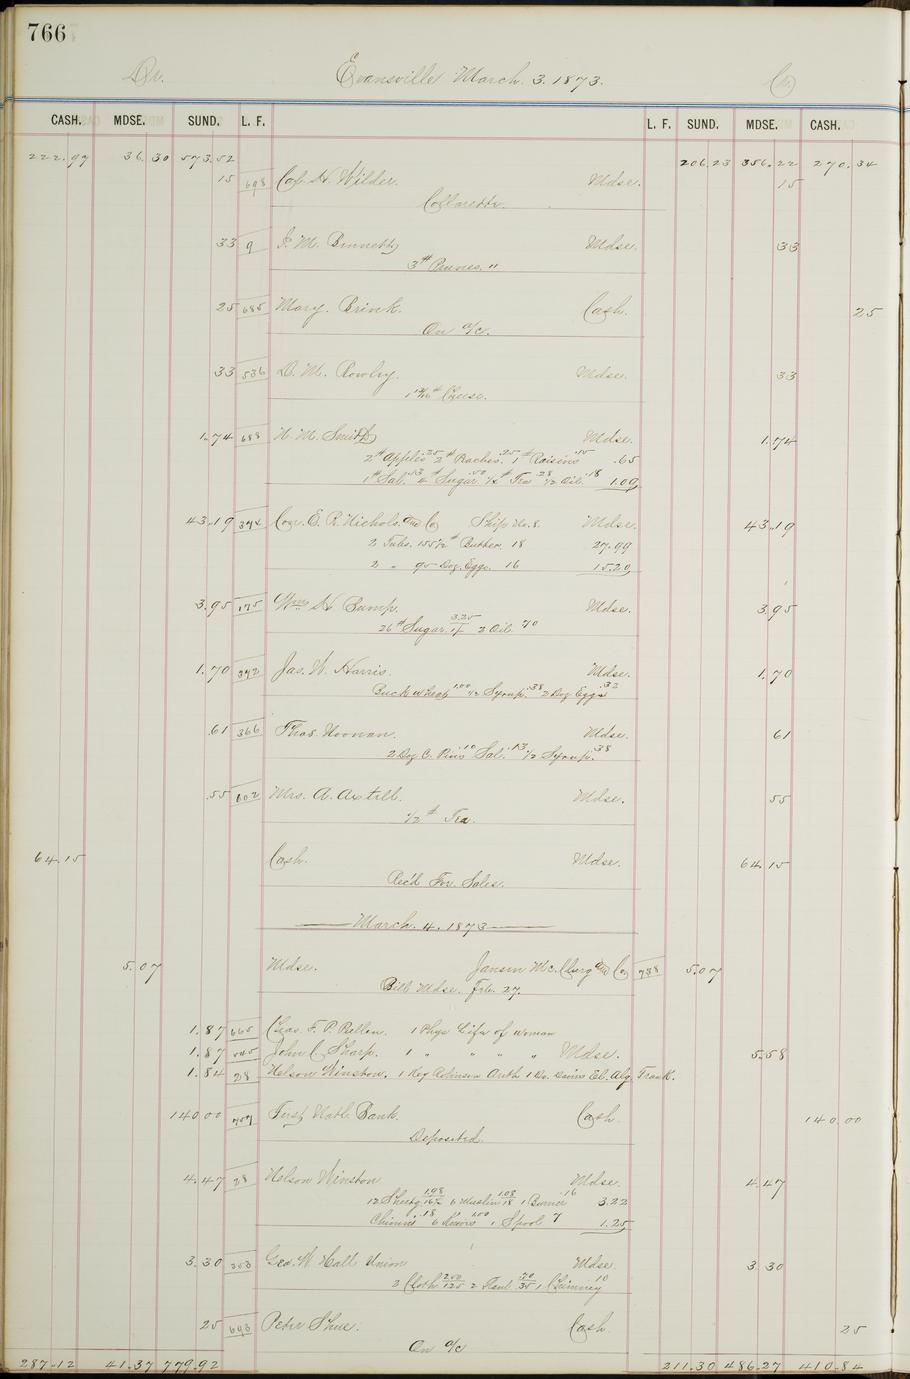 766
Dr. Evansville March. 3. 1873. Cr.
CASH. MDSE. SUND. L. F. L. F. SUND. MDSE. CASH.
222.97 36.30 573.52 206.23 356.22 270.34
15 698 H. Wilder. Mdse. 15
33 9 M. Bennett Mdse. 33
3# Prunes. "
25 685 Mary. Brink. Cash. 25
On a/c.
33 536 D. M. Rowley. Mdse. 33
Cheese.
1.74 688 H. M. Smith Mdse. 1.74
2# Apples .25 2# Peaches .25 1# Raisins .15 .65
1# Sal. .13 4# Sugar .50 1/4# Tea .28 1/2 Oil .18 1.09
43.19 374 E. R. Nichols. and Co Ship No. 8. Mdse. 43.19
2 Tubs. 155 1/2# Butter 18 27.99
2 " 95 Doz. Eggs. 16 15.20
3.95 175 Wm H Bump. Mdse. 3.95
26# Sugar. 3.25 2 Oil. 70
1.70 342 Jas. W. Harris. Mdse. 1.70
Buckwheat 1.00 1/2 Syrup. .38 2 Doz Eggs .32
.61 366 Thos. Noonan. Mdse. 61
2 Doz C. Pins .10 Sal. .13 1/2 Syrup. .38
.55 602 Mrs. A. Axtell. Mdse. 55
1/2# Tea.
64.15 Cash. Mdse. 64.15
Rec'd For. Sales.
March. 4. 1873
5.07 Mdse. Jansen Mc.Clurg and Co 738 5.07
Bill Mdse. Feb. 27.
1.87 665 Chas. F. P. Pullen. 1 Phys Life of Woman
1.87 545 John C. Sharp. 1 " " " " Mdse. 5.58
1.84 28 Nelson Winston. 1 Key Robinson Arith 1 Do. Davies El. Alg. Frank.
140.00 707 First Natl. Bank. Cash 140.00
Deposited.
4.47 28 Nelson Winston Mdse. 4.47
12 Sheetg. 1.98 16 1/2 6 Muslin 1.08 18 1 Burner .16 3.22
Chimni .18 6 1.00 1 Spool 7 1.25
3.30 353 Geo. W. Hall Union Mdse. 3.30
2 Cloth 2.50 1.25 2 Flanl. .70 35 1 Chimney 10
25 693 Peter Shue. Cash 25
On a/c
287.12 41.37 779.92 211.30 486.27 410.84